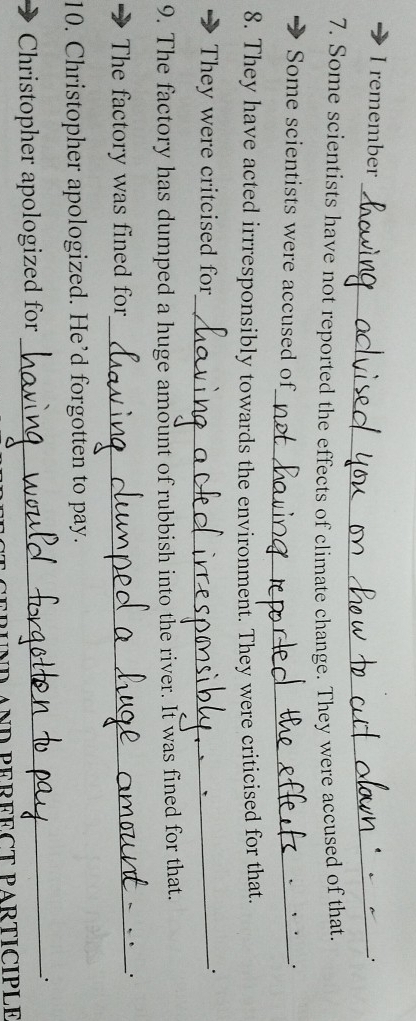 ➔ I remember having advised you on how to cut down . . .
7. Some scientists have not reported the effects of climate change. They were accused of that.
➔ Some scientists were accused of not having reported the effects . . . .
8. They have acted irrresponsibly towards the environment. They were criticised for that.
➔ They were critcised for having acted irresponsibly . . .
9. The factory has dumped a huge amount of rubbish into the river. It was fined for that.
➔ The factory was fined for having dumped a huge amount . . . .
10. Christopher apologized. He'd forgotten to pay.
➔ Christopher apologized for having would forgotten to pay .
PERFECT GERUND AND PERFECT PARTICIPLE